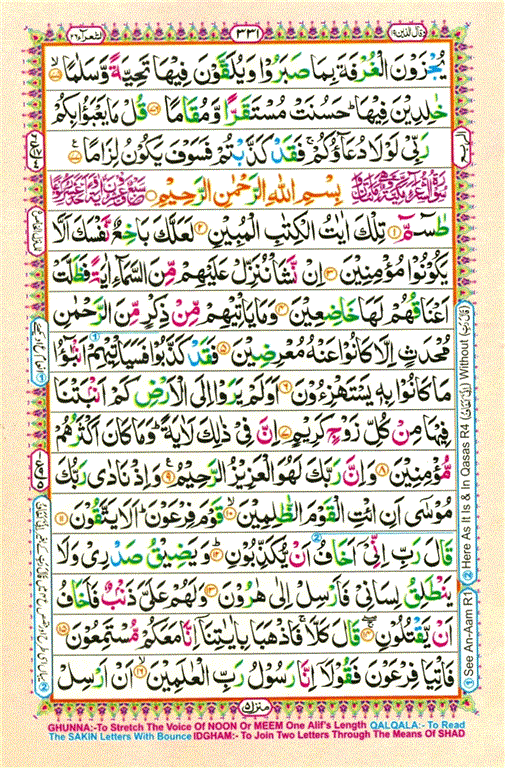 وقال الذین ۱۹
۳۳۱
الشعراء ۲۶
یُجْزَوْنَ الْغُرْفَةَ بِمَا صَبَرُوْا وَیُلَقَّوْنَ فِیْهَا تَحِیَّةً وَّسَلٰمًا ۙ﴿۷۵﴾
خٰلِدِیْنَ فِیْهَا ؕ حَسُنَتْ مُسْتَقَرًّا وَّمُقَامًا ﴿۷۶﴾ قُلْ مَا یَعْبَؤُا بِكُمْ
رَبِّیْ لَوْلَا دُعَآؤُكُمْ ۚ فَقَدْ كَذَّبْتُمْ فَسَوْفَ یَكُوْنُ لِزَامًا ﴿۷۷﴾
بِسْمِ اللّٰهِ الرَّحْمٰنِ الرَّحِیْمِ
طٰسٓمّٓ ﴿۱﴾ تِلْكَ اٰیٰتُ الْكِتٰبِ الْمُبِیْنِ ﴿۲﴾ لَعَلَّكَ بَاخِعٌ نَّفْسَكَ اَلَّا
یَكُوْنُوْا مُؤْمِنِیْنَ ﴿۳﴾ اِنْ نَّشَاْ نُنَزِّلْ عَلَیْهِمْ مِّنَ السَّمَآءِ اٰیَةً فَظَلَّتْ
اَعْنَاقُهُمْ لَهَا خٰضِعِیْنَ ﴿۴﴾ وَمَا یَاْتِیْهِمْ مِّنْ ذِكْرٍ مِّنَ الرَّحْمٰنِ
مُحْدَثٍ اِلَّا كَانُوْا عَنْهُ مُعْرِضِیْنَ ﴿۵﴾ فَقَدْ كَذَّبُوْا فَسَیَاْتِیْهِمْ اَنْۢبٰٓؤُا
مَا كَانُوْا بِهٖ یَسْتَهْزِءُوْنَ ﴿۶﴾ اَوَلَمْ یَرَوْا اِلَی الْاَرْضِ كَمْ اَنْۢبَتْنَا
فِیْهَا مِنْ كُلِّ زَوْجٍ كَرِیْمٍ ﴿۷﴾ اِنَّ فِیْ ذٰلِكَ لَاٰیَةً ؕ وَمَا كَانَ اَكْثَرُهُمْ
مُّؤْمِنِیْنَ ﴿۸﴾ وَاِنَّ رَبَّكَ لَهُوَ الْعَزِیْزُ الرَّحِیْمُ ﴿۹﴾ وَاِذْ نَادٰی رَبُّكَ
مُوْسٰۤی اَنِ ائْتِ الْقَوْمَ الظّٰلِمِیْنَ ﴿۱۰﴾ قَوْمَ فِرْعَوْنَ ؕ اَلَا یَتَّقُوْنَ ﴿۱۱﴾
قَالَ رَبِّ اِنِّیْۤ اَخَافُ اَنْ یُّكَذِّبُوْنِ ﴿۱۲﴾ وَیَضِیْقُ صَدْرِیْ وَلَا
یَنْطَلِقُ لِسَانِیْ فَاَرْسِلْ اِلٰی هٰرُوْنَ ﴿۱۳﴾ وَلَهُمْ عَلَیَّ ذَنْۢبٌ فَاَخَافُ
اَنْ یَّقْتُلُوْنِ ﴿۱۴﴾ قَالَ كَلَّا ۚ فَاذْهَبَا بِاٰیٰتِنَاۤ اِنَّا مَعَكُمْ مُّسْتَمِعُوْنَ ﴿۱۵﴾
فَاْتِیَا فِرْعَوْنَ فَقُوْلَاۤ اِنَّا رَسُوْلُ رَبِّ الْعٰلَمِیْنَ ﴿۱۶﴾ اَنْ اَرْسِلْ
منزل ۵
① See An-Aam R1 ② Here As It Is & In Qasas R4 (قَالَ رَبِّ) Without (اِنِّیْ اَخَافُ)
GHUNNA:-To Stretch The Voice Of NOON Or MEEM One Alif's Length QALQALA:- To Read
The SAKIN Letters With Bounce IDGHAM:- To Join Two Letters Through The Means Of SHAD